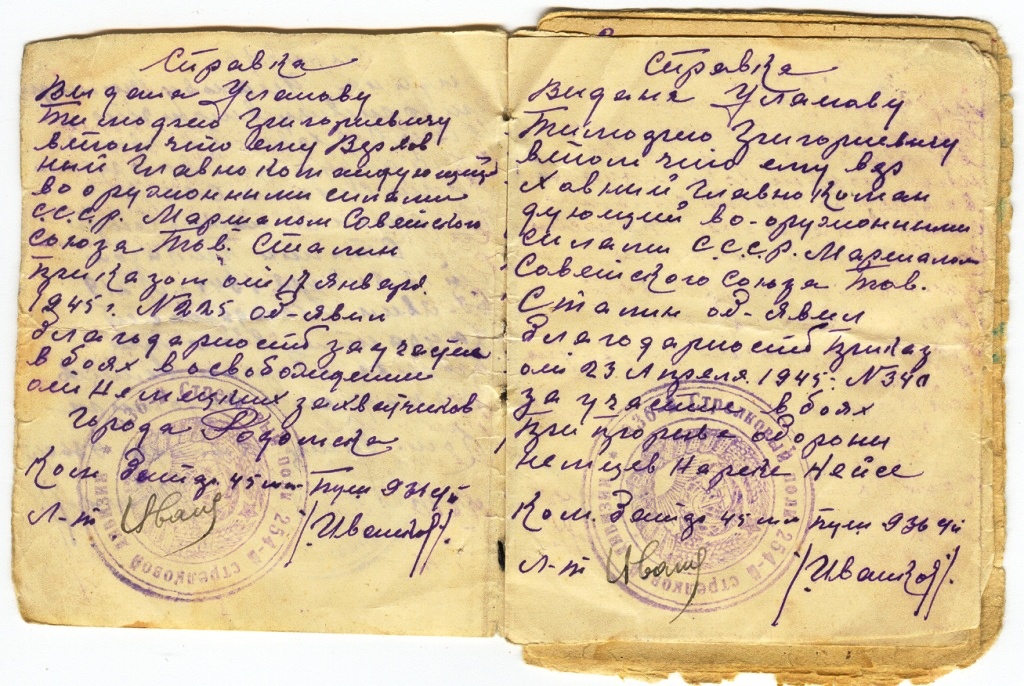 Справка
Выдана Уламову
Тимофею Григориевичу
в том что ему Верхов
ный Главнокомандующий
во оружонными силами
С.С.С.Р. Маршалом Советского
союза Тов. Сталин
Приказом от 17 Января
1945 г. №225 об-явил
Благодарность за участие
в боях в освобождении
от Немецких захватчиков
города Радомска
Ком. 45 мм Пуш 936 сп
Л-т Иван /Ивашков/.
936-й Стрелковый полк 254-й стрелковой дивизии
Справка
Видана Уламову
Тимофею Григориевичу
в том что ему вер
ховний Главно Коман
дующий во-оружонными
силами С.С.С.Р. Маршалом
Советского союза Тов.
Сталин об-явил
Благодарность Приказ
от 23 Апреля 1945 г. №340
за участие в боях
При прорыве обороны
немцев На реке Нейсе
Ком. 45 мм пуш 936 сп
Л-т Иван /Ивашков/.
936-й Стрелковый полк 254-й стрелковой дивизии